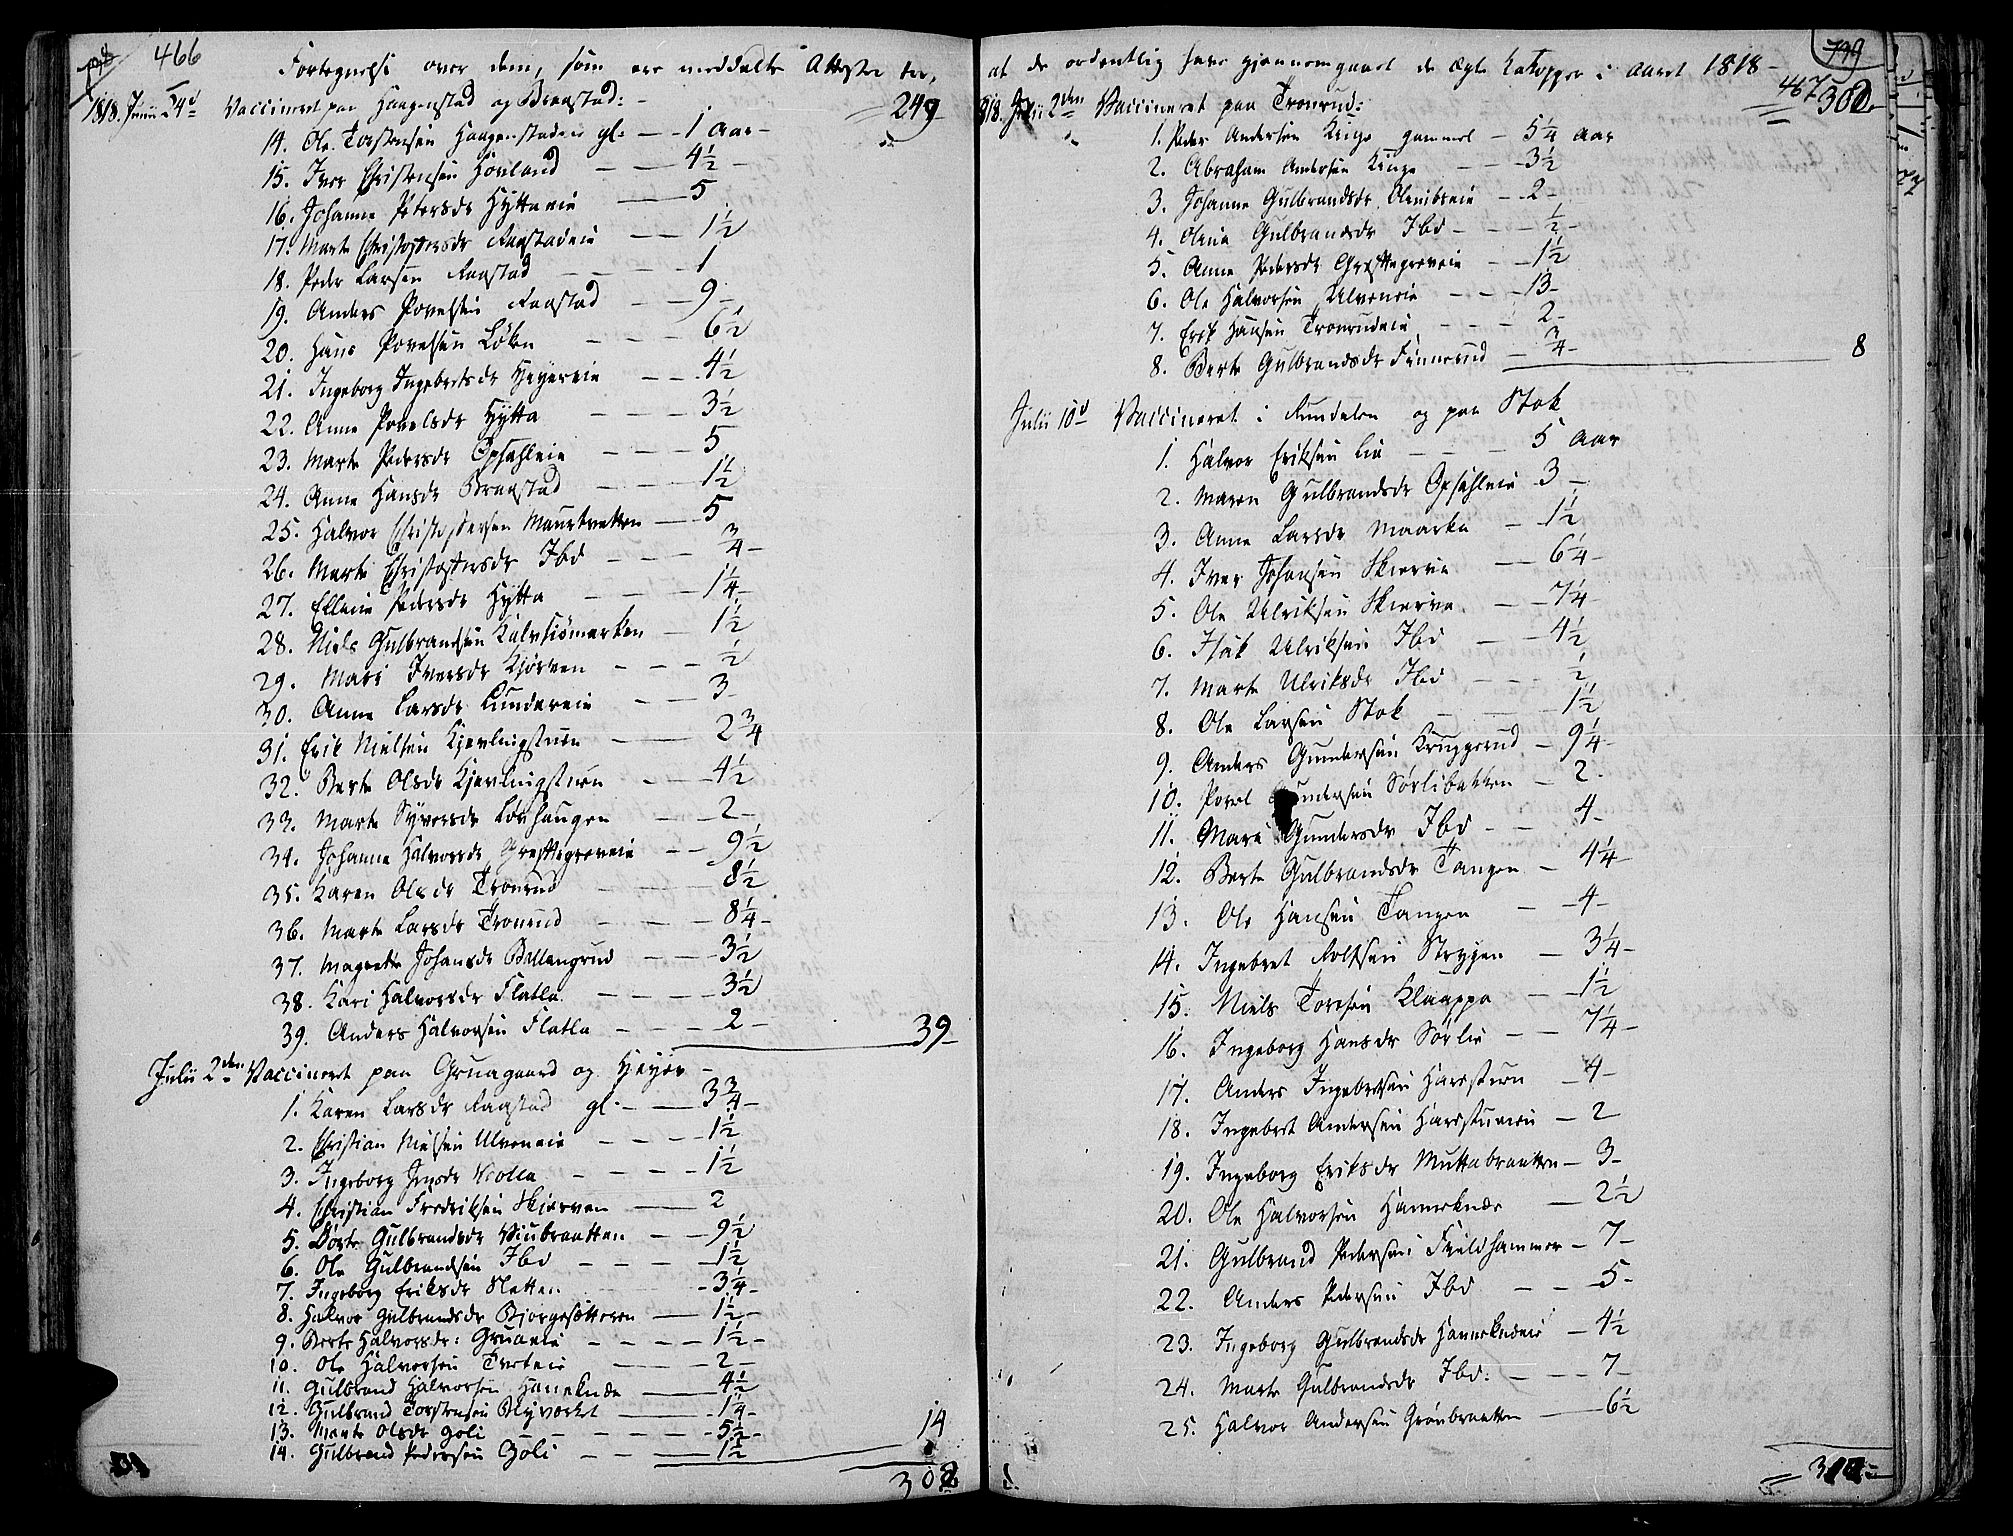 466
Fortegnelse over dem, som ere meddelte Attester for,
1818. Junii 24d Vaccineret paa Haagenstad og Braastad:- 249
14. Ole Torstensen Haagenstadeie gl: — 1 Aar-
15. Iver Christensen Hovland — 4½ -
16. Johanne Peters dr Hytteeie — 5
17. Marte Christophersdr Raastadeie — 1½
18. Peder Larsen Raastad — 1
19. Anders Povelsen Raastad — 9-
20. Hans Povelsen Løken — 6½
21. Ingeborg Ingebretsdr Heyereie — 4½
22. Anne Povelsdr Hytta — 3½
23. Marte Pedersdr Opsahleie — 5
24. Anne Hansdr Braastad — 1½
25. Halvor Christophersen Maurtvetten — 5
26. Marte Christophersdr Ibd — ¾-
27. Ellene Pedersdr Hytta — 1¼-
28. Niels Gulbrandsen Kalvsiømarken — 1½
29. Mari Iversdr Kjørven — ½
30. Anne Larsdr Lundereie — 3-
31. Erik Nielsen Kjevlingstuen — 2¾
32. Berte Olsdr Kjevlingstuen — 4½
33. Marte Syversdr Løvhaugen — 2-
34. Johanne Halvorsdr Greftegreveie — 9½
35. Karen Olsdr Tronrud — 8½
36. Marte Larsdr Tronrud — 8¼-
37. Magrethe Johansdr Ballangrud — 3½
38. Kari Halvorsdr Flatla — 3½
39. Anders Halvorsen Flatla — 2- 39-
Julii 2den Vaccineret paa Gruagaard og Heyer -
1. Karen Larsdr Raastad gl. — 3¾-
2. Christian Nielsen Ulveneie — 1½
3. Ingeborg Jensdr Molla — 1½
4. Christian Fredriksen Skjerven — 2
5. Dorte Gulbrandsdr Viubraatten — 9½
6. Ole Gulbrandsen Ibd — 1½
7. Ingeborg Eriksdr Sletten — 3¼-
8. Halvor Gulbrandsdr Bjørgesætteren — 1½-
9. Berte Halvorsdr: Gruaeie — 1½-
10. Ole Halvorsen Tveteeie — 2-
11. Gulbrand Halvorsen Haneknæ — 4½
12. Gulbrand Torstensen Blyverket — 1¼-
13. Marte Olsdr Goli — 5½-
14. Gulbrand Pedersen Goli — 1½ 14
302
at de ordentlig have gjennemgaaet de ægte Kakopper i Aaret 1818-
467
1818. Julii 2den Vaccineret paa Tronrud: 302
1. Peder Andersen Kinge gammel — 5¼ Aar
2. Abraham Andersen Kinge — 3½
3. Johanne Gulbrandsdr Olemibreie — 2-
4. Olene Gulbrandsdr Ibd - ½-
5. Anne Pedersdr Greftegreveie — 1½
6. Ole Halvorsen Ulveneie — 13-
7. Erik Hansen Tronrudeie — 2-
8. Berte Gulbrandsdr Finnerud — ¾- 8
Julii 10d Vaccineret i Rundelen og paa Stok
1. Halvor Eriksen Lie — 5 Aar
2. Maren Gulbrandsdr Opsahleie 3 -
3. Anne Larsdr Maarka — 1½
4. Iver Johansen Skierve — 6¼-
5. Ole Ulriksen Skierve — 7¼-
6. Isak Ulriksen Ibd — 4½
7. Marte Ulriksdr Ibd — ½
8. Ole Larsen Stok — 1½
9. Anders Gundersen Kruggerud — 9¼-
10. Povel Gundersen Sørlibakken — 2-
11. Mari Gundersdr Ibd - 4-
12. Berte Gulbrandsdr Tangen — 4¼-
13. Ole Hansen Tangen — 4-
14. Ingebret Rolfsen Strygen — 3¼-
15. Niels Toresen Klaappa — 1½
16. Ingeborg Hansdr Sørlie — 7¼-
17. Anders Ingebretsen Harestuen — 4-
18. Ingebret Andersen Harestueeie — 2
19. Ingeborg Eriksdr Muttabraatten — 3-
20. Ole Halvorsen Hanneknæe — 2½
21. Gulbrand Pedersen Fieldhammer — 7-
22. Anders Pedersen Ibd — 5-
23. Ingeborg Gulbrandsdr Hanneknæeie — 4½
24. Marte Gulbrandsdr Ibd: — 7-
25. Halvor Andersen Grønbraatten — 6½